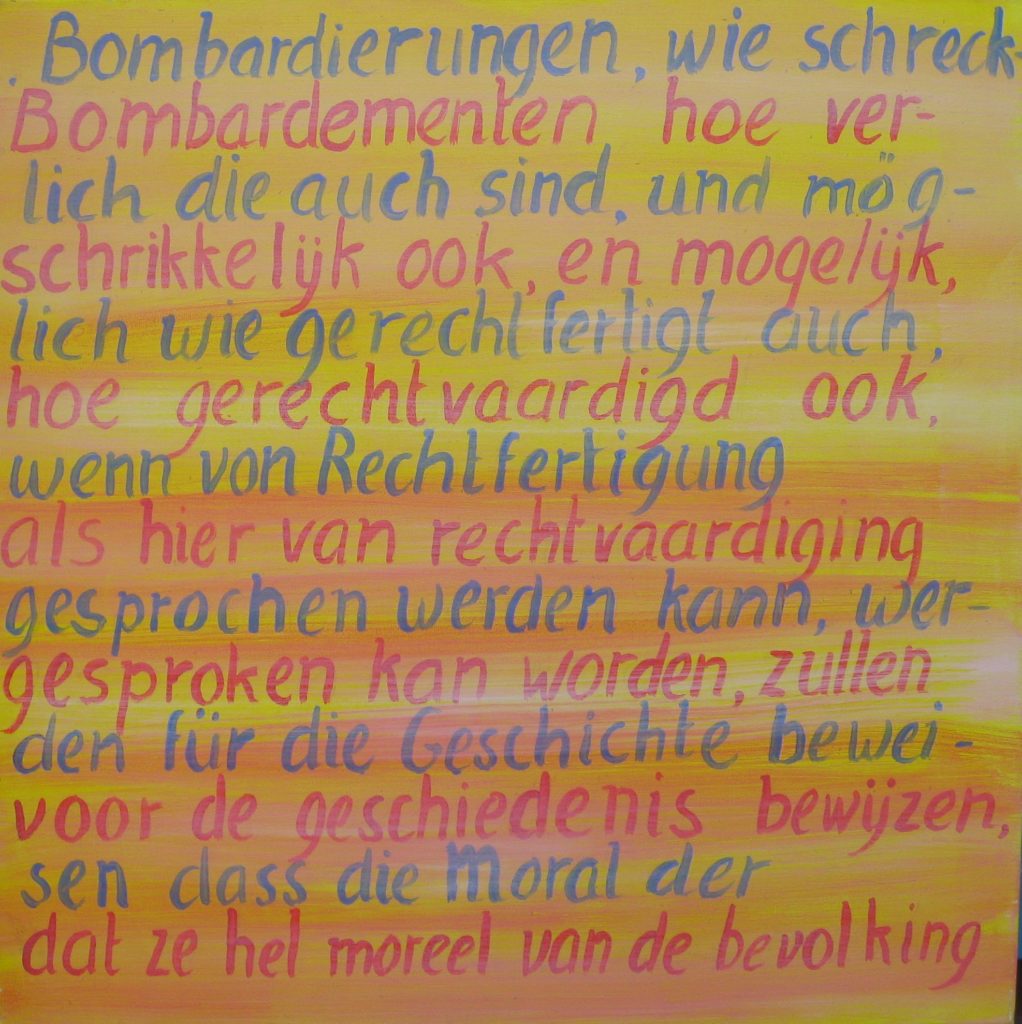 . Bombardierungen, wie schreck-
Bombardementen hoe ver-
lich die auch sind, und mög-
schrikkelijk ook, en mogelijk,
lich wie gerechtfertigt auch,
hoe gerechtvaardigd ook,
wenn von Rechtfertigung
als hier van rechtvaardiging
gesprochen werden kann, wer-
gesproken kan worden, zullen
den für die Geschichte bewei-
voor de geschiedenis bewijzen,
sen dass die Moral der
dat ze het moreel van de bevolking